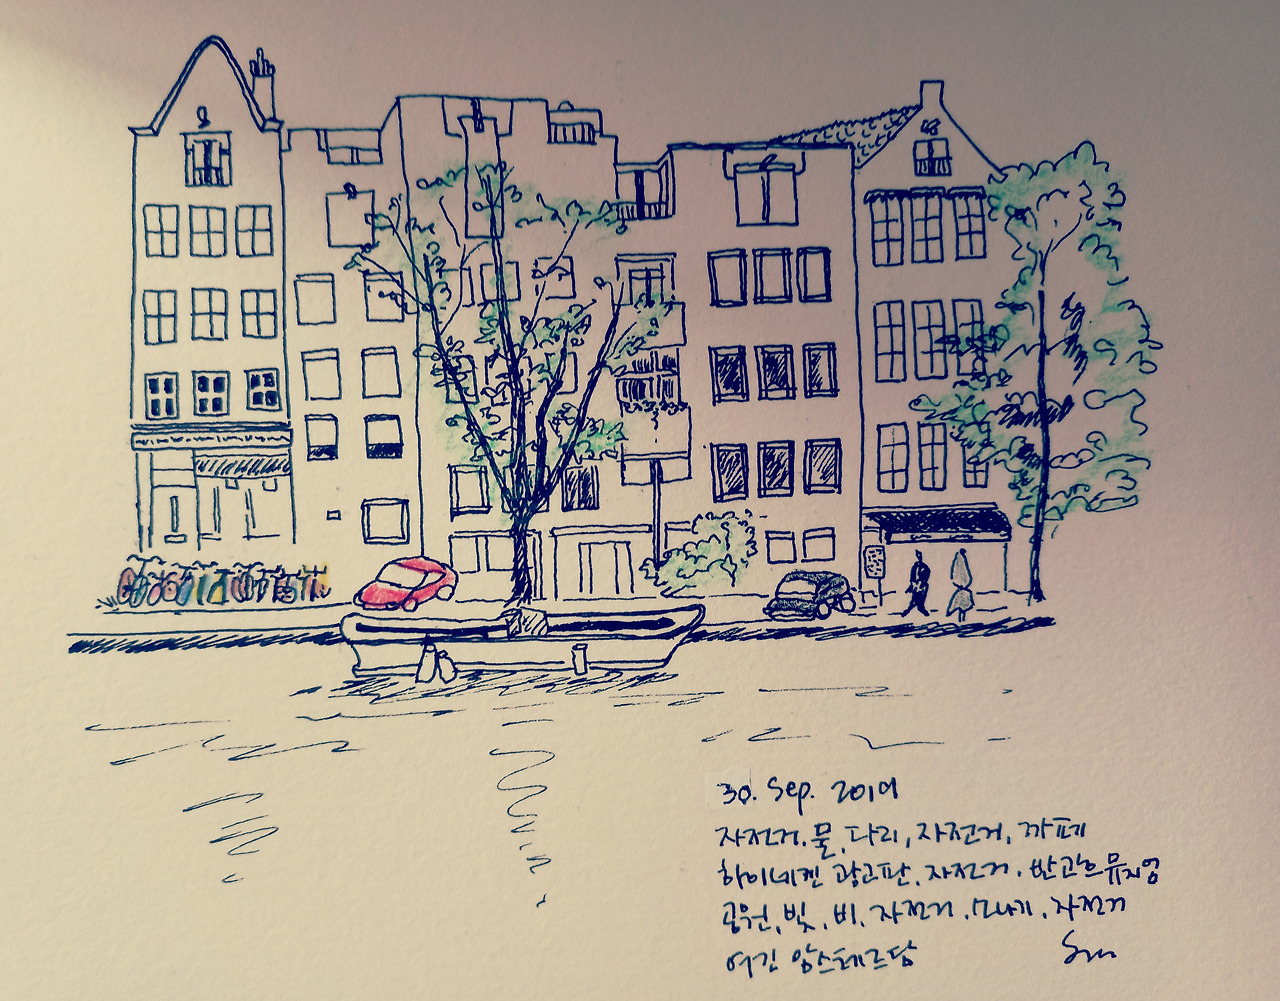 30. Sep. 2019
자전거. 물, 다리, 자전거, 까페
하이네켄 광고판, 자전거. 반고흐뮤지엄
공원, 빛, 비, 자전거. 모나기, 자전거
여긴 암스테르담